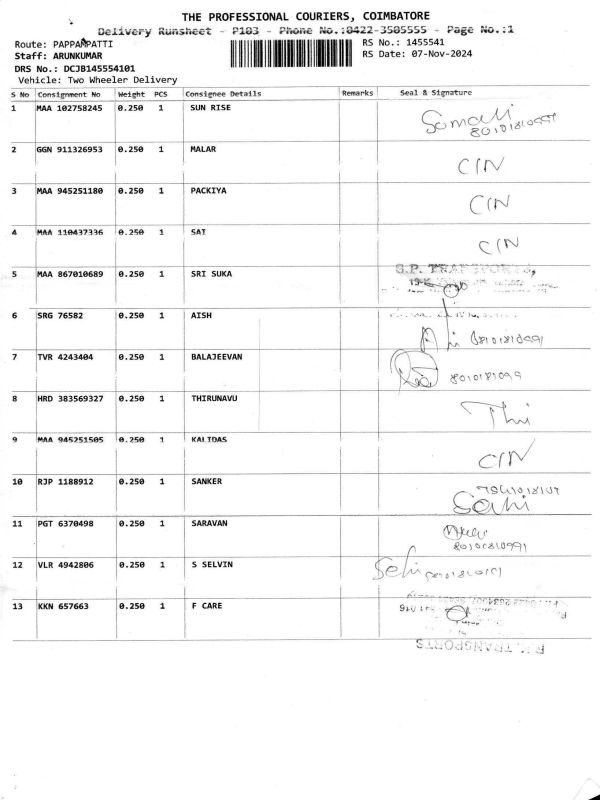 THE PROFESSIONAL COURIERS, COIMBATORE
Delivery Runsheet - P103 - Phone No.:0422-3505555 - Page No.:1
Route: PAPPAMPATTI RS No.: 1455541
Staff: ARUNKUMAR RS Date: 07-Nov-2024
DRS No.: DCJB145554101
Vehicle: Two Wheeler Delivery
S No Consignment No Weight PCS Consignee Details Remarks Seal & Signature
1 MAA 102758245 0.250 1 SUN RISE
2 GGN 911326953 0.250 1 MALAR CIN
3 MAA 945251180 0.250 1 PACKIYA CIN
4 MAA 110437336 0.250 1 SAI CIN
5 MAA 867010689 0.250 1 SRI SUKA S.P. TRANSPORTS,
6 SRG 76582 0.250 1 AISH
7 TVR 4243404 0.250 1 BALAJEEVAN
8 HRD 383569327 0.250 1 THIRUNAVU Thi
9 MAA 945251505 0.250 1 KALIDAS CIN
10 RJP 1188912 0.250 1 SANKER
11 PGT 6370498 0.250 1 SARAVAN
12 VLR 4942806 0.250 1 S SELVIN
13 KKN 657663 0.250 1 F CARE
TRANSPORTS